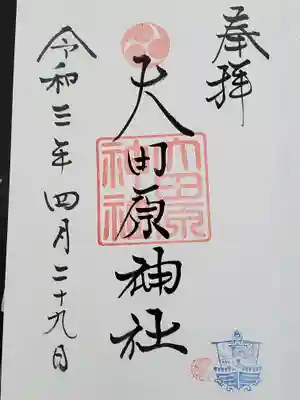 奉拝
大田原神社
令和三年四月二十九日
大田原
神社